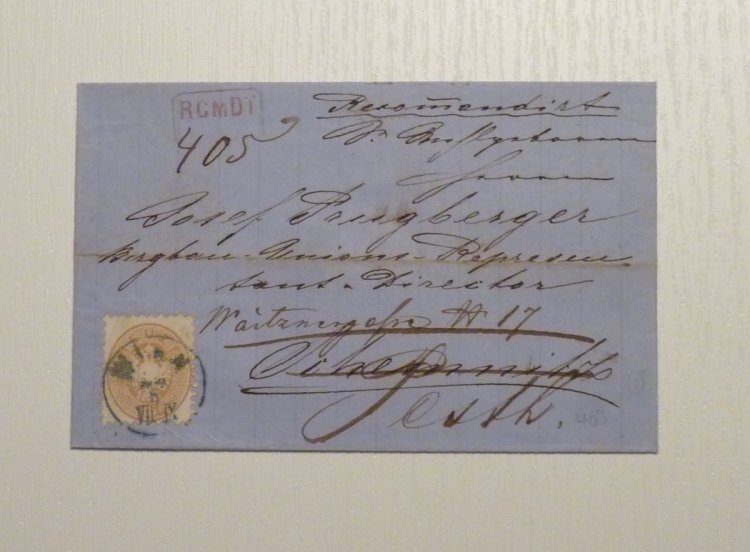 RCMDT
405
Recom̅endirt
Sr.
Herrn
Josef Prugberger
Bergbau-Unions-Represen
tant-Director
Waitznergasse № 17
Schemnitz
WIEN
VII